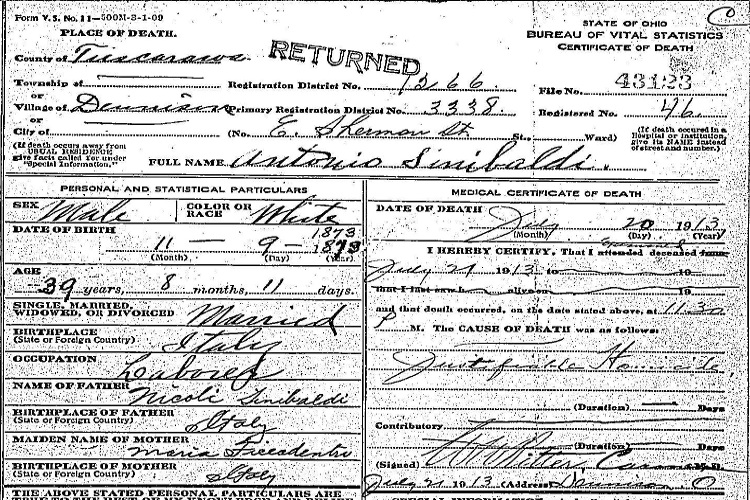 Form V. S. No. 11—500M-3-1-09
C
PLACE OF DEATH.
STATE OF OHIO
BUREAU OF VITAL STATISTICS
CERTIFICATE OF DEATH
County of Tuscarawas
RETURNED
Township of
Registration District No. 1266
File No. 43123
or
Village of Dennison
Primary Registration District No. 3338
Registered No. 46
or
City of
(No. E. Sherman St St., Ward)
(If death occured in a Hospital or institution, give its NAME instead of street and number.)
(If death occurs away from USUAL RESIDENCE give facts called for under "Special Information.")
FULL NAME Antonio Sinibaldi.
PERSONAL AND STATISTICAL PARTICULARS
SEX Male
COLOR OR RACE White
DATE OF BIRTH
1873
11 — 9 — 1873
(Month) (Day) (Year)
AGE
39 years, 8 months, 11 days.
SINGLE, MARRIED, WIDOWED, OR DIVORCED Married
BIRTHPLACE
(State or Foreign Country) Italy
OCCUPATION Laborer
NAME OF FATHER Nicoli Sinibaldi
BIRTHPLACE OF FATHER
(State or Foreign Country) Italy
MAIDEN NAME OF MOTHER Maria
BIRTHPLACE OF MOTHER
(State or Foreign Country) Italy
THE ABOVE STATED PERSONAL PARTICULARS ARE
MEDICAL CERTIFICATE OF DEATH
DATE OF DEATH
July 20 1913
(Month) (Day) (Year)
I HEREBY CERTIFY, That I attended deceased from
July 21 1913 to 19
that I last saw h alive on 19
and that death occurred, on the date stated above, at 11-30
P M. The CAUSE OF DEATH was as follows:
Justifiable Homicide
(Duration) Days
Contributory
(Duration) Days
(Signed) M. D.
July 21 1913 (Address) Dennison O
SPECIAL INFORMATION